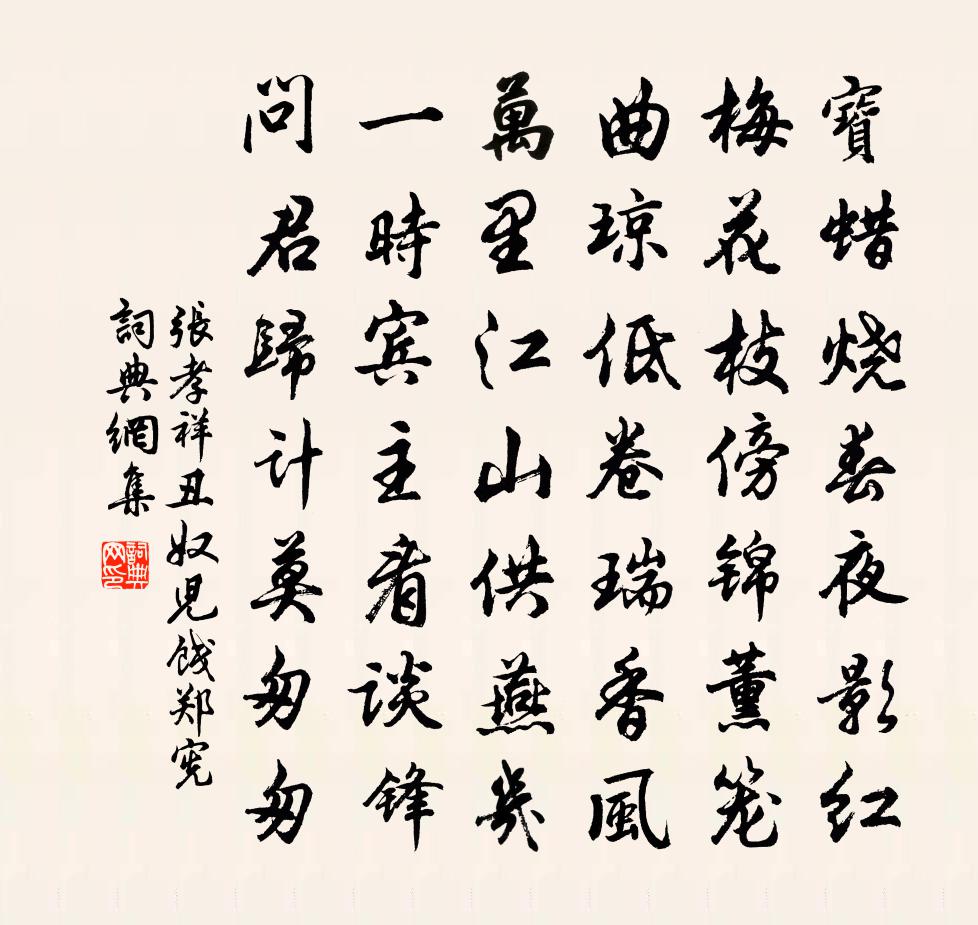 寶蜡烧春夜影红
梅花枝傍锦薰笼
曲琼低卷瑞香風
萬里江山供燕幾
一時宾主看谈锋
問君歸计莫匆匆
張孝祥丑奴児餞郑宪
詞典網集
詞典网印